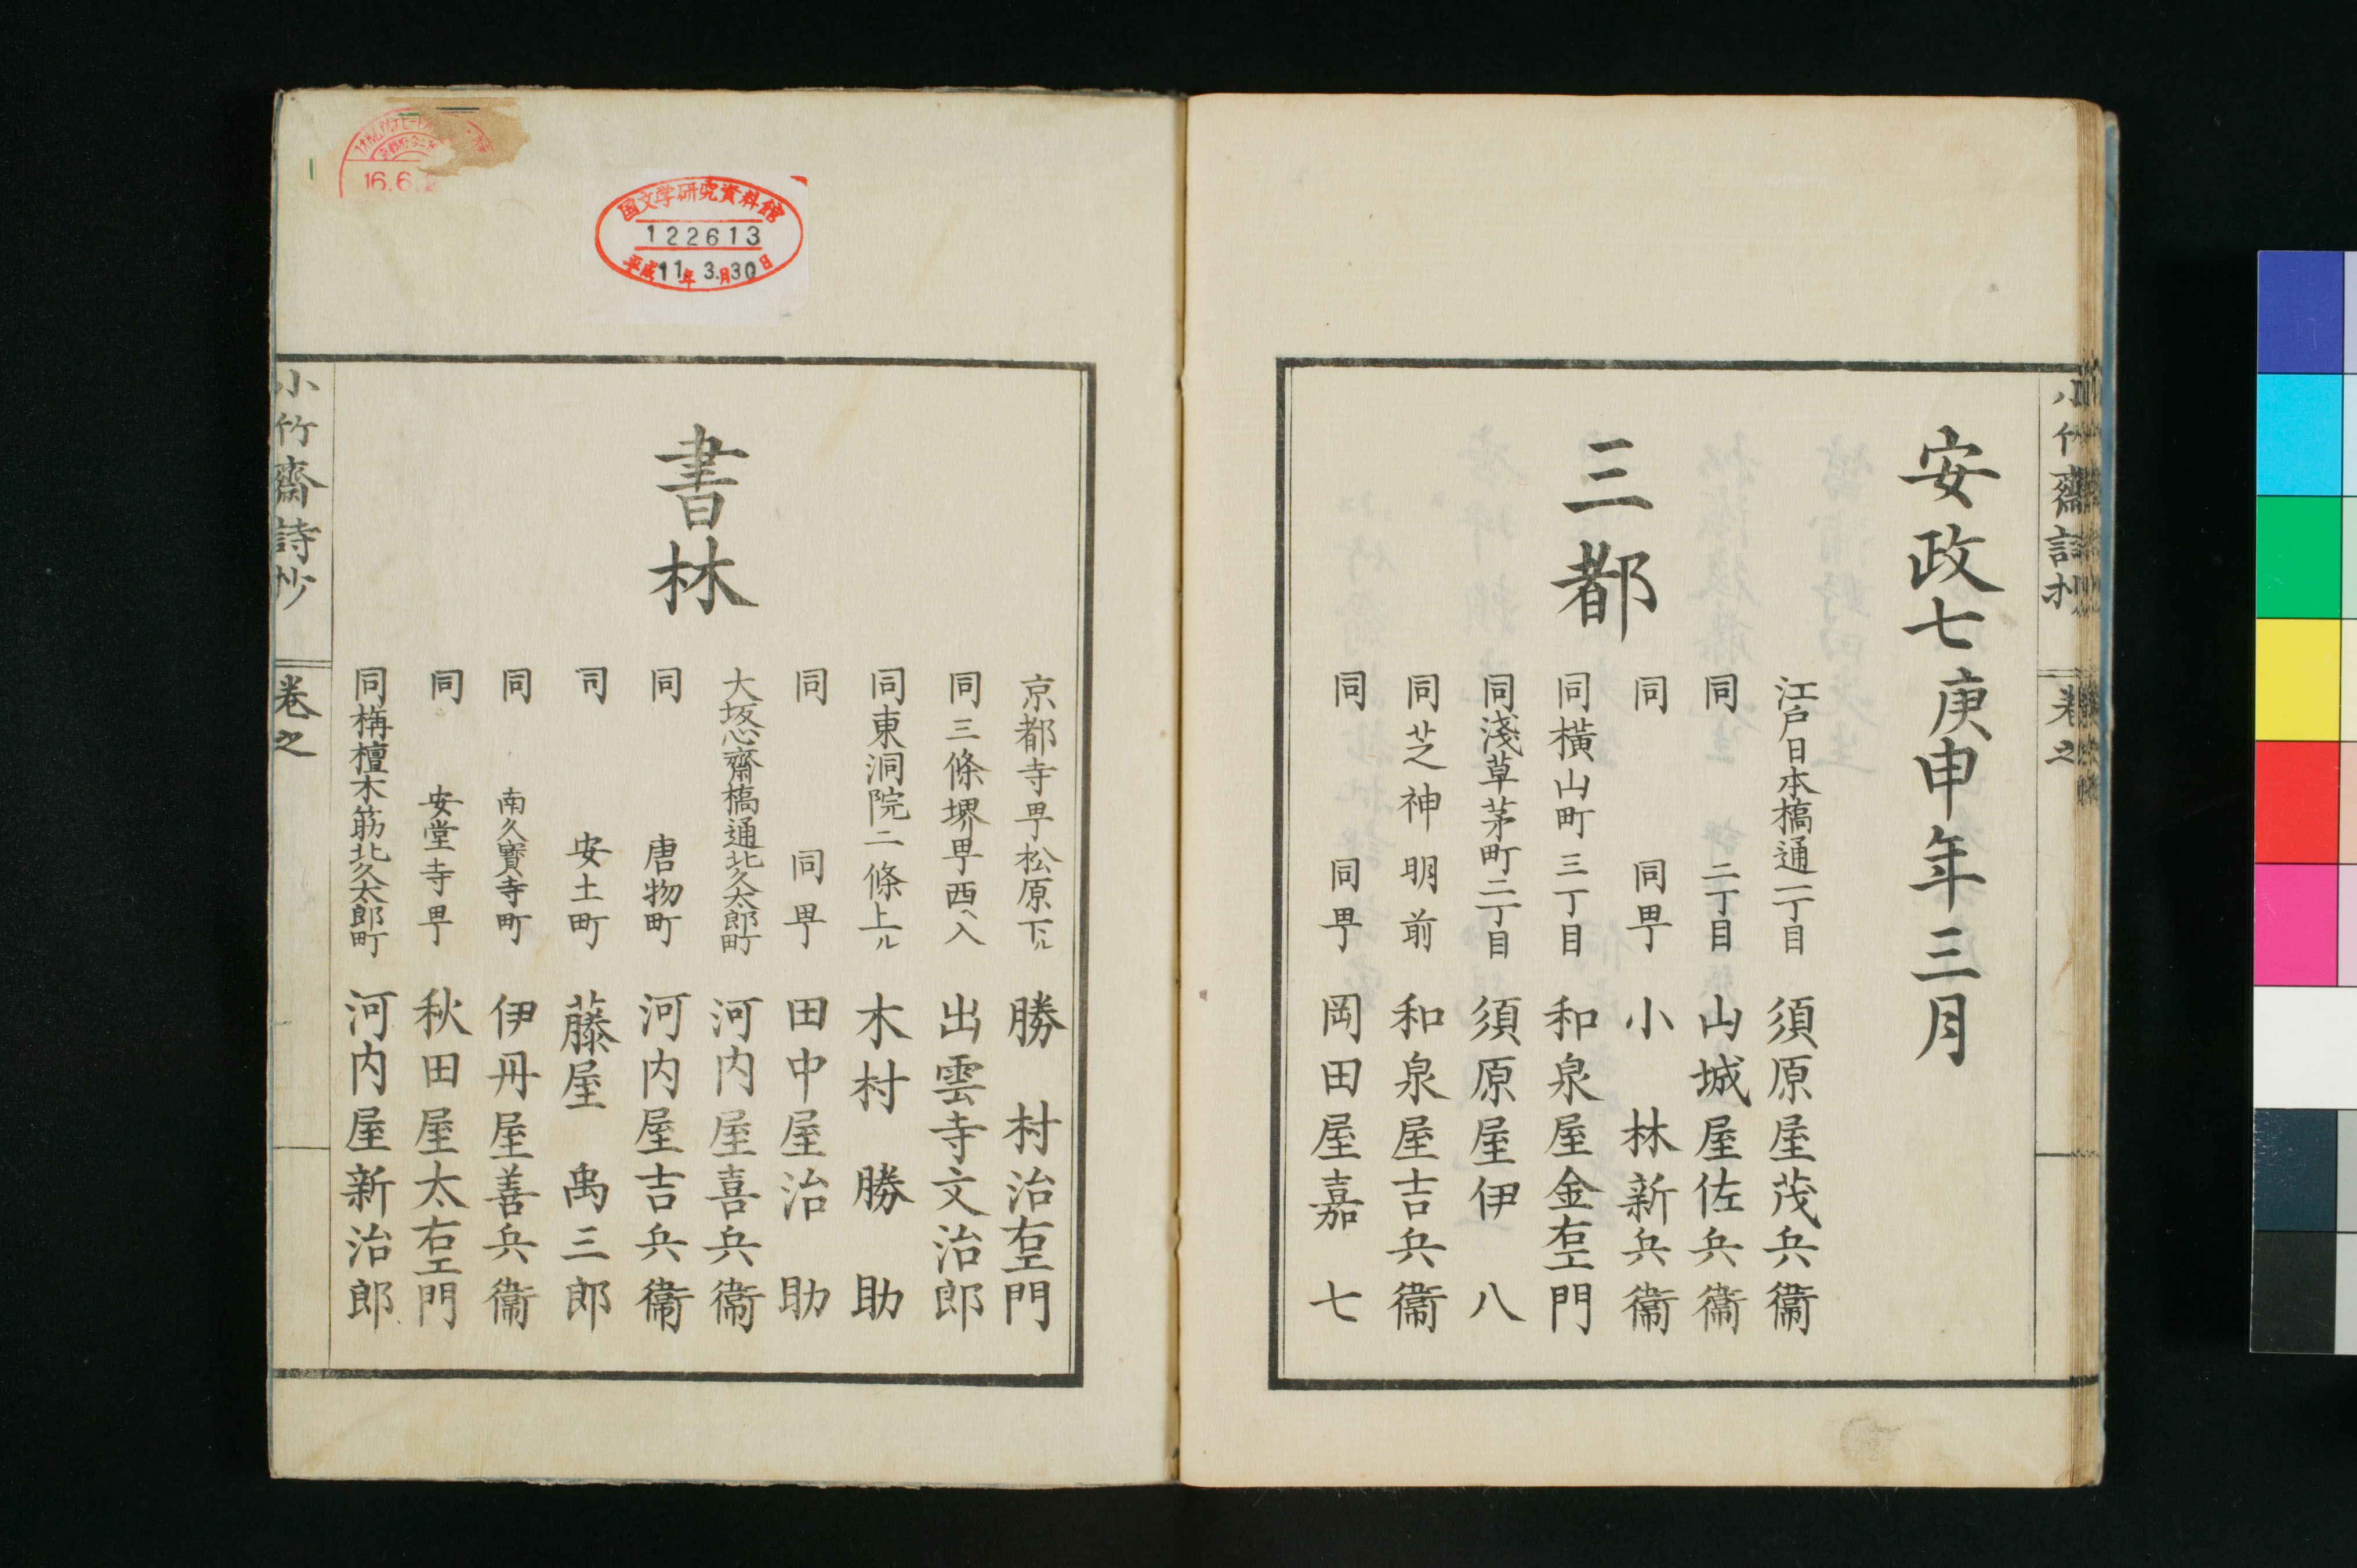 小竹齋詩抄
卷之
安政七庚申年三月
三都
江戸日本橋通一丁目 須原屋茂兵衞
同 二丁目 山城屋佐兵衞
同 同㽗 小林新兵衞
同橫山町三丁目 和泉屋金右エ門
同淺草茅町二丁目 須原屋伊八
同芝神明前 和泉屋吉兵衞
同 同㽗 岡田屋嘉七
書林
京都寺㽗松原下ル 勝村治右エ門
同三條堺㽗西ヘ入 出雲寺文治郎
同東洞院二條上ル 木村勝助
同 同㽗 田中屋治助
大坂心齋橋通北久太郎町 河内屋喜兵衞
同 唐物町 河内屋吉兵衞
同 安土町 藤屋禹三郎
同 南久寳寺町 伊丹屋善兵衞
同 安堂寺㽗 秋田屋太右エ門
同梅檀木筋北久太郎町 河内屋新治郎
小竹齋詩抄
卷之
国文学研究資料館
122613
平成11年3月30日
16.6